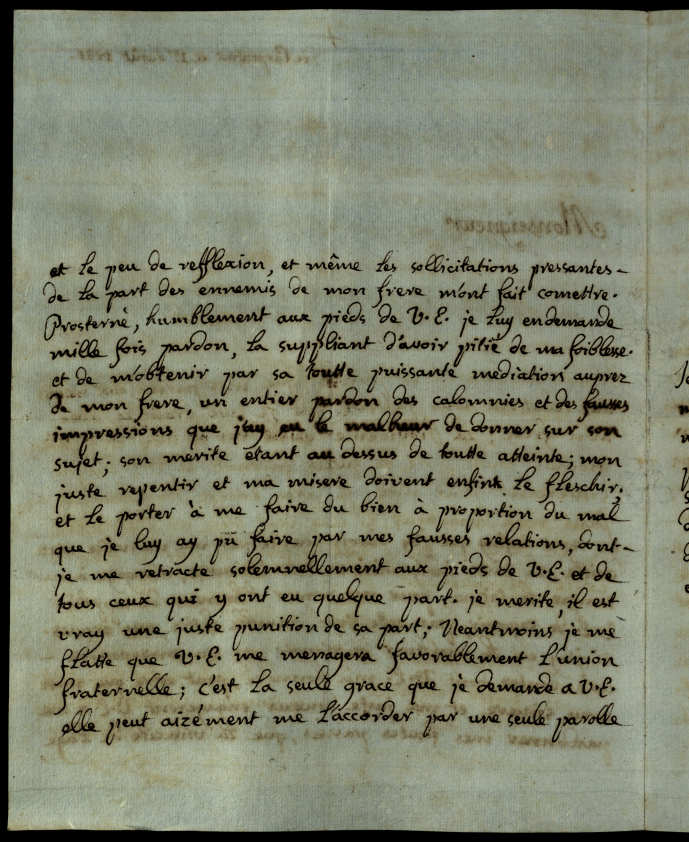 Monseigneur
et le peu de refflexion, et même les sollicitations pressantes-
de la part des ennemis de mon frere m'ont fait comettre.
Prosterné, humblement aux pieds de V. E. je luy en demande
mille fois pardon, la suppliant d'avoir pitié de ma foiblesse.
et de m'obtenir par sa toutte puissante mediation auprez
de mon frere, un entier pardon des calomnies et des fausses
impressions que j'ay eu le malheur de donner sur son
sujet; son merite etant au dessus de toutte atteinte; mon
juste repentir et ma misere doivent enfin le fleschir,
et le porter à me faire du bien à proportion du mal
que je luy ay pû faire par mes fausses relations, dont-
je me retracte solemnellement aux pieds de V. E. et de
tous ceux qui y ont eu quelque part. je merite, il est
vray une juste punition de sa part; Neantmoins je me
flatte que V. E. me menagera favorablement l'union
fraternelle; c'est la seule grace que je demande a V. E.
elle peut aizément me l'accorder par une seule parolle